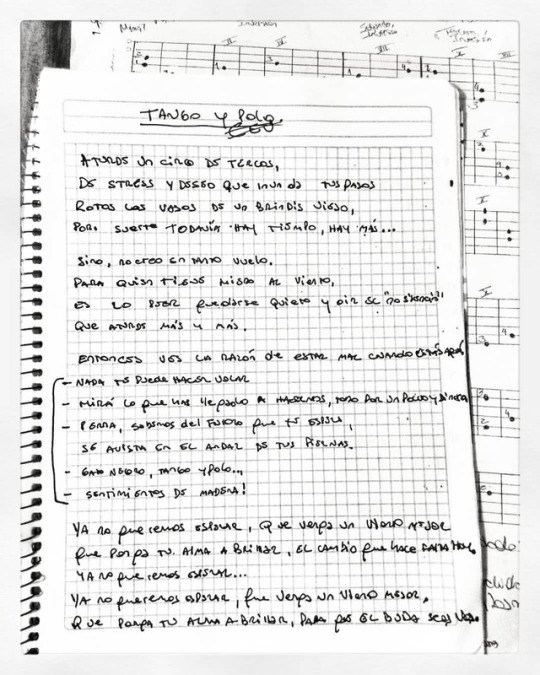 TANGO y Polo
ATURDE UN CIRCO DE TERCOS,
DE STRESS Y DESEO QUE INUNDA TUS PASOS
ROTOS LOS VASOS DE UN BRINDIS VIEJO,
POR SUERTE TODAVÍA HAY TIEMPO, HAY MÁS...
SINO, NO CREO EN TANTO VUELO.
PARA QUIEN TIENE MIEDO AL VIENTO,
ES LO PEOR QUEDARSE QUIETO Y OIR SE
QUE ATURDE MÁS Y MÁS.
ENTONCES VES LA RAZÓN DE ESTAR MAL CUANDO ESTÁS AQUÍ
- NADA TE PUEDE HACER VOLAR
- MIRÁ LO QUE HAS LLEGADO A HACERNOS, TODO POR UN POLVO Y
- PERRA, SABEMOS DEL FUTURO QUE TE ESPERA,
SE AVISTA EN EL ANDAR DE TUS PIERNAS.
- GATO NEGRO, TANGO Y POLO...
- SENTIMIENTOS DE MADERA!
YA NO QUEREMOS ESPERAR, QUE VENGA UN VIENTO MEJOR
QUE PONGA TU ALMA A BRILLAR, EL CAMBIO QUE HACE FALTA HOY
YA NO QUEREMOS ESPERAR...
YA NO QUEREMOS ESPERAR, QUE VENGA UN VIENTO MEJOR,
QUE PONGA TU ALMA A BRILLAR, PARA QUE EL BUDA SEAS VOS.